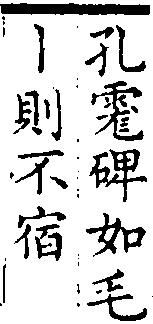 孔霍碑如毛
丨則不宿